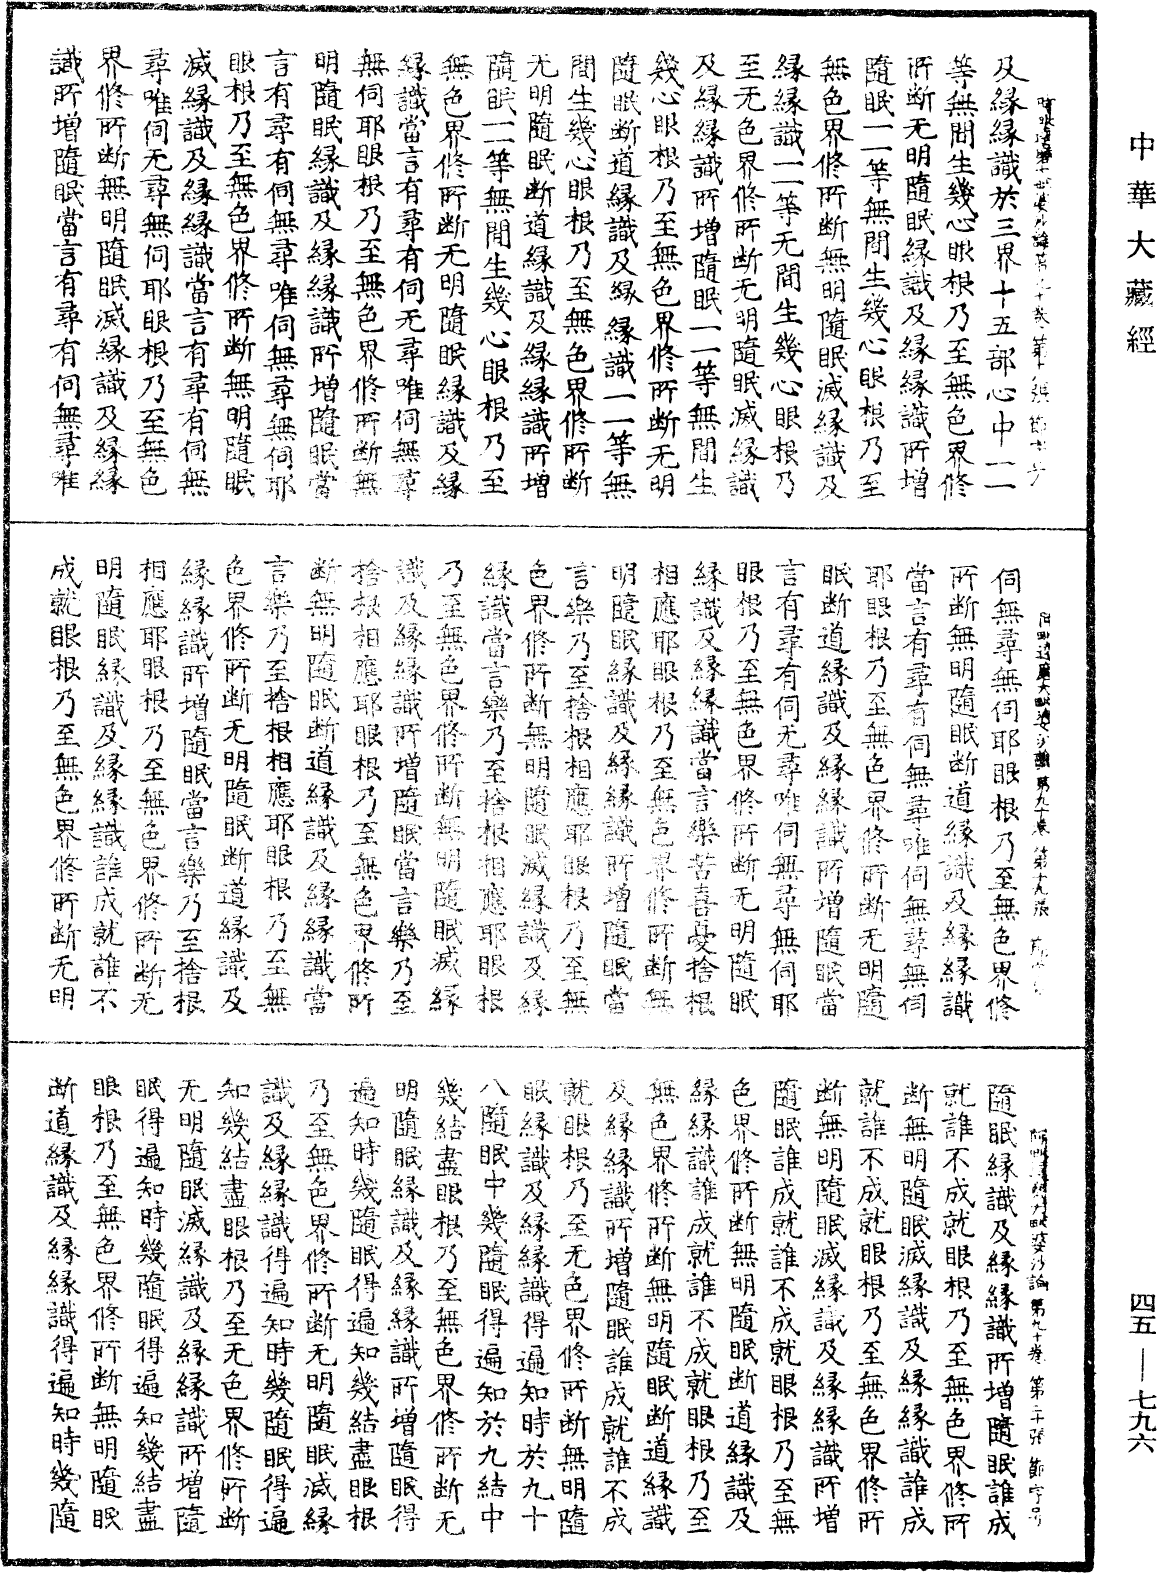 中華大藏經
及緣緣識於三界十五部心中一一
等無間生幾心眼根乃至無色界修
所断无明隨眠緣識及緣緣識所增
隨眠一一等無間生幾心眼根乃至
無色界修所断無明隨眠滅緣識及
緣緣識一一等无間生幾心眼根乃
至无色界修所断无明隨眠滅緣識
及緣緣識所增隨眠一一等無間生
幾心眼根乃至無色界修所断无明
隨眠断道緣識及緣緣識一一等無
間生幾心眼根乃至無色界修所断
无明隨眠断道緣識及緣緣識所增
隨眠一一等無間生幾心眼根乃至
無色界修所断无明隨眠緣識及緣
緣識當言有尋有伺无尋唯伺無尋
無伺耶眼根乃至無色界修所断無
明隨眠緣識及緣緣識所增隨眠當
言有尋有伺無尋唯伺無尋無伺耶
眼根乃至無色界修所断無明隨眠
滅緣識及緣緣識當言有尋有伺無
尋唯伺无尋無伺耶眼根乃至無色
界修所断無明隨眠滅緣識及緣緣
識所增隨眠當言有尋有伺無尋唯
伺無尋無伺耶眼根乃至無色界修
所断無明隨眠断道緣識及緣緣識
當言有尋有伺無尋唯伺無尋無伺
耶眼根乃至無色界修所断无明隨
眠断道緣識及緣緣識所增隨眠當
言有尋有伺无尋唯伺無尋無伺耶
眼根乃至無色界修所断无明隨眠
緣識及緣緣識當言樂苦喜憂捨根
相應耶眼根乃至無色界修所断無
明隨眠緣識及緣緣識所增隨眠當
言樂乃至捨根相應耶眼根乃至無
色界修所断無明隨眠滅緣識及緣
緣識當言樂乃至捨根相應耶眼根
乃至無色界修所断無明隨眠滅緣
識及緣緣識所增隨眠當言樂乃至
捨根相應耶眼根乃至無色界修所
断無明隨眠断道緣識及緣緣識當
言樂乃至捨根相應耶眼根乃至無
色界修所断无明隨眠断道緣識及
緣緣識所增隨眠當言樂乃至捨根
相應耶眼根乃至無色界修所断无
明隨眠緣識及緣緣識誰成就誰不
成就眼根乃至無色界修所断无明
阿毗達磨大毗婆沙論第九十卷 第十九張
隨眠緣識及緣緣識所增隨眠誰成
就誰不成就眼根乃至無色界修所
断無明隨眠滅緣識及緣緣識誰成
就誰不成就眼根乃至無色界修所
断無明隨眠滅緣識及緣緣識所增
隨眠誰成就誰不成就眼根乃至無
色界修所断無明隨眠断道緣識及
緣緣識誰成就誰不成就眼根乃至
無色界修所断無明隨眠断道緣識
及緣緣識所增隨眠誰成就誰不成
就眼根乃至无色界修所断無明隨
眠緣識及緣緣識得遍知時於九十
八隨眠中幾隨眠得遍知於九結中
幾結盡眼根乃至無色界修所断无
明隨眠緣識及緣緣識所增隨眠得
遍知時幾隨眠得遍知幾結盡眼根
乃至無色界修所断无明隨眠滅緣
識及緣緣識得遍知時幾隨眠得遍
知幾結盡眼根乃至无色界修所断
无明隨眠滅緣識及緣緣識所增隨
眠得遍知時幾隨眠得遍知幾結盡
眼根乃至無色界修所断無明隨眠
断道緣識及緣緣識得遍知時幾隨
阿毗達磨大毗婆沙論第九十卷 第二十張 節字号
四五—七九六